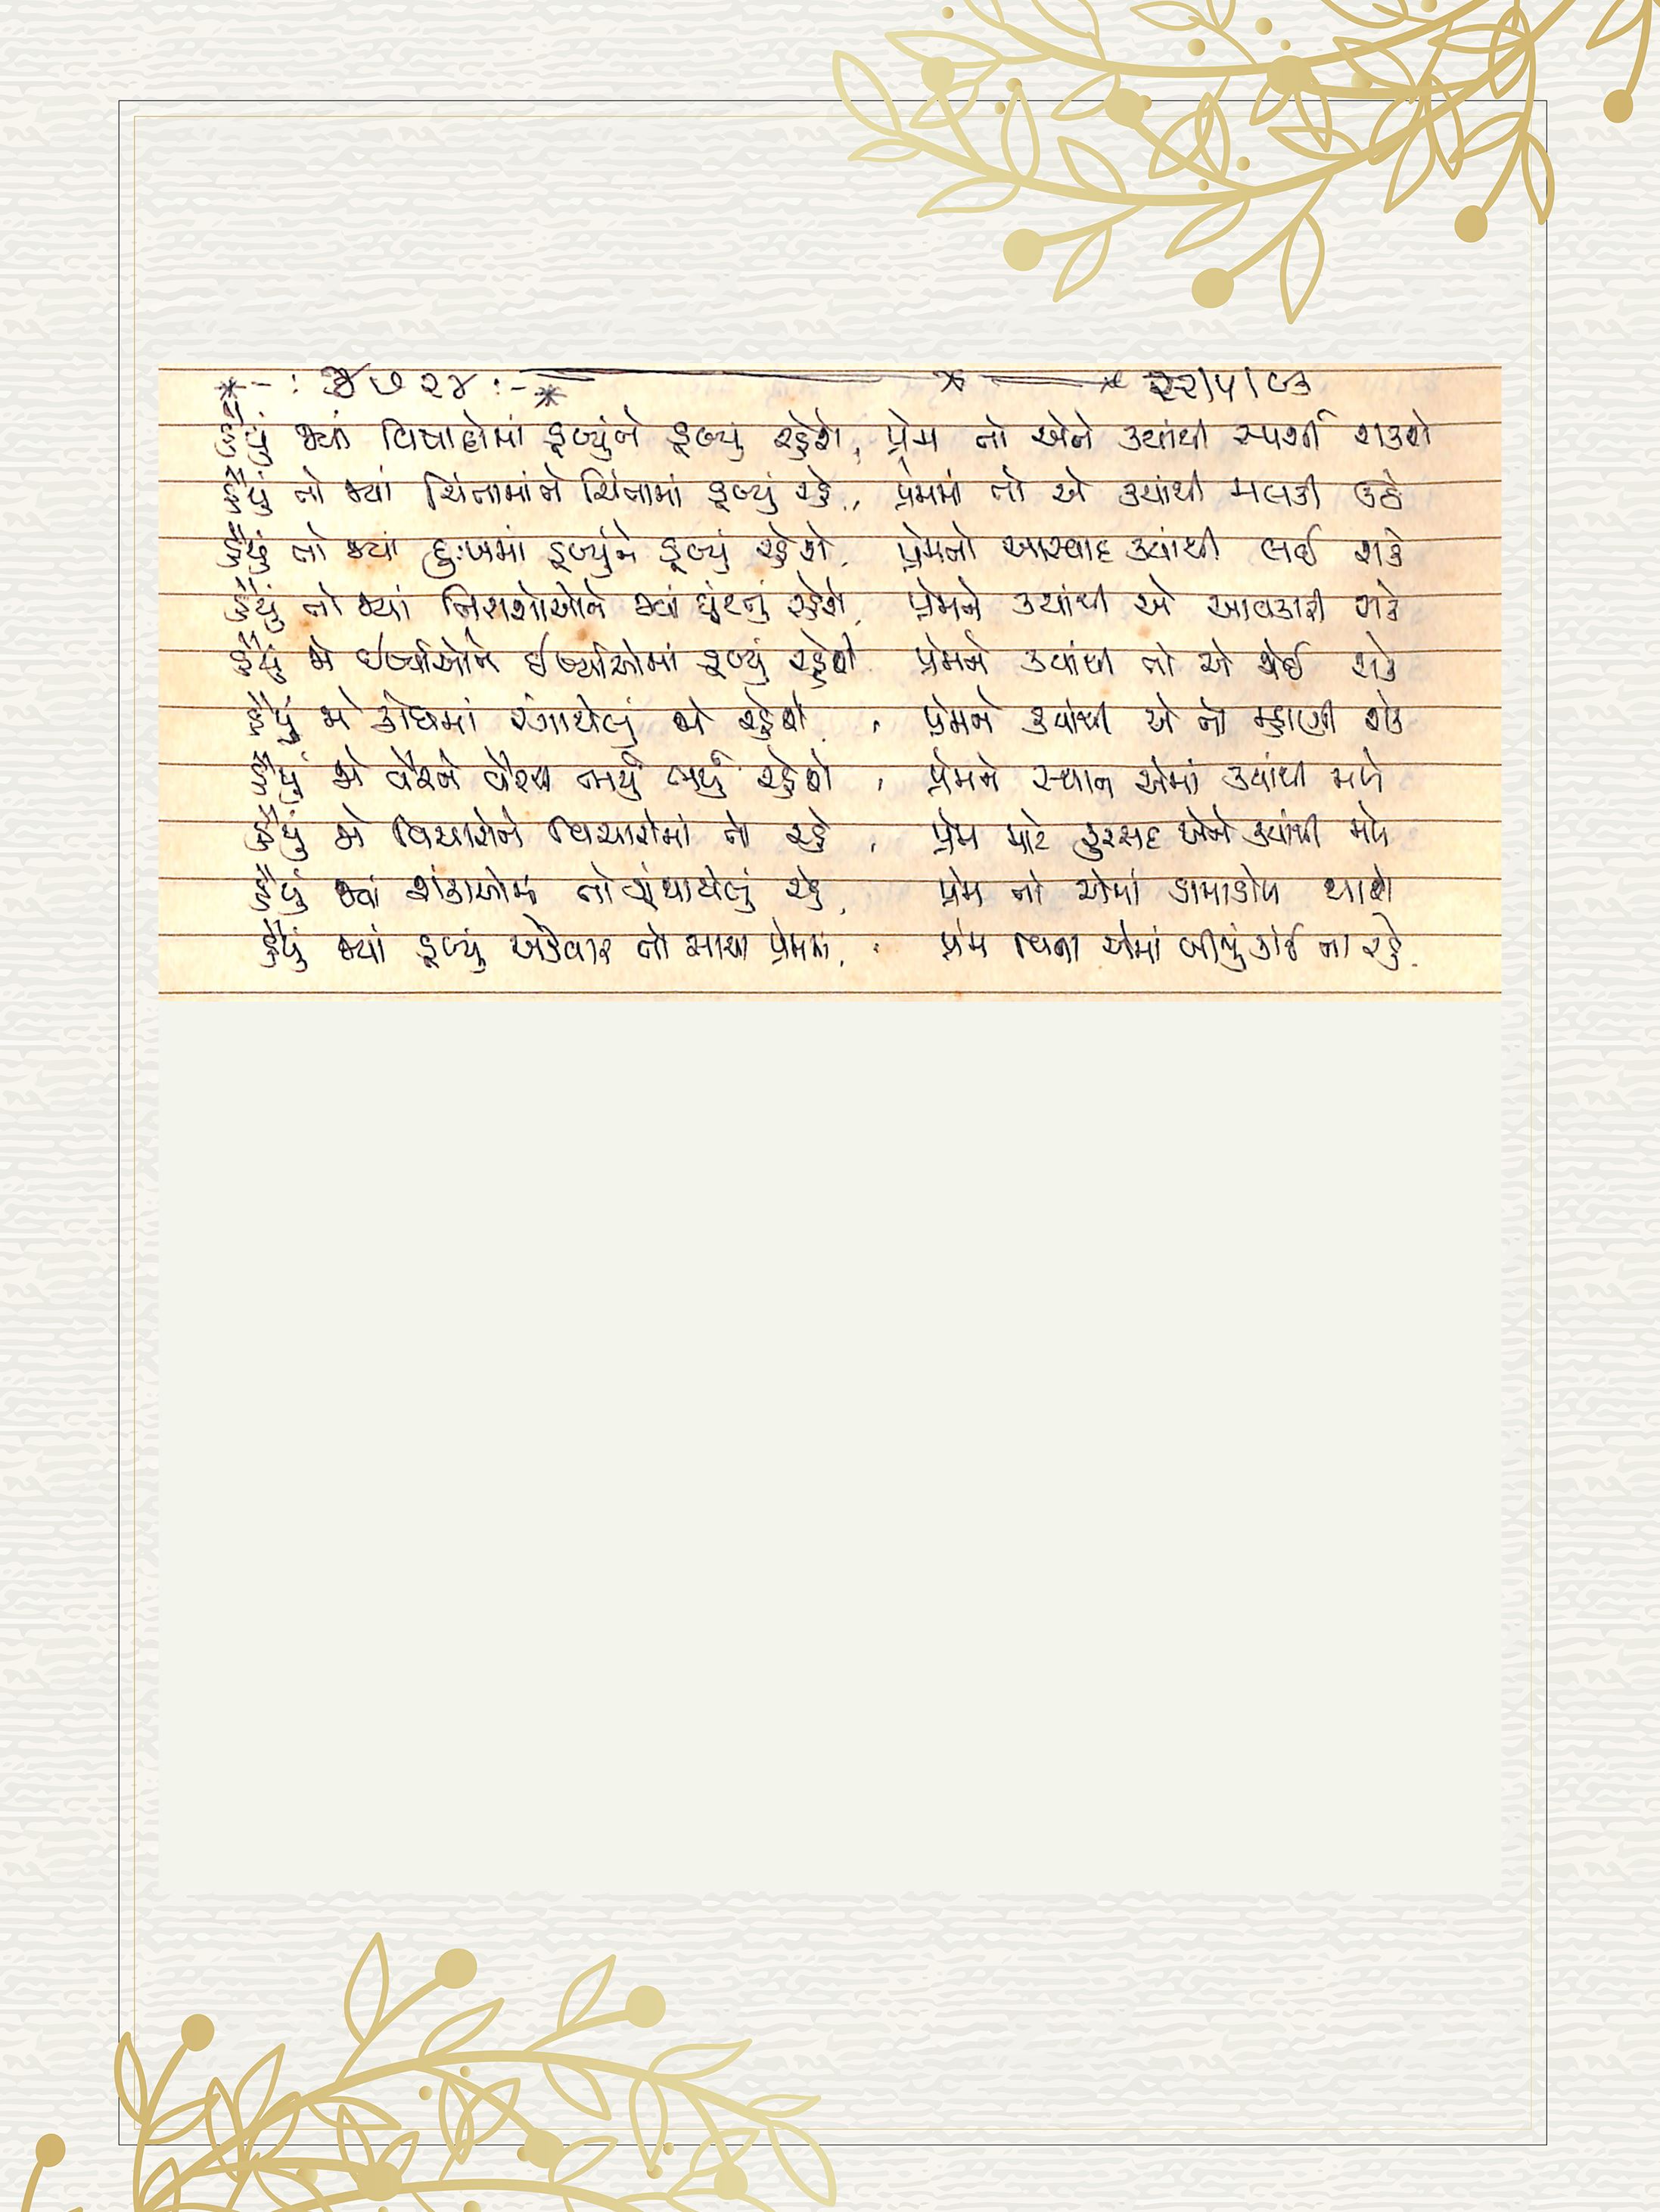 *-: ૪૭૨૪ :-* * * ૨૨/૫/૯૩
હૈયું જ્યાં વિષાદોમાં ડૂબ્યુંને ડૂબ્યું રહેશે, પ્રેમ તો એને ક્યાંથી સ્પર્શી શકશે
હૈયું તો જ્યાં ચિંતામાંને ચિંતામાં ડૂબ્યું રહે, પ્રેમમાં તો એ ક્યાંથી મલકી ઉઠે
હૈયું તો જ્યાં દુઃખમાં ડૂબ્યુંને ડૂબ્યું રહેશે, પ્રેમનો આસ્વાદ ક્યાંથી લઈ શકે
હૈયું તો જ્યાં નિરાશાઓને જ્યાં ઘુંટતું રહેશે, પ્રેમને ક્યાંથી એ આવકારી શકે
હૈયું જો ઈર્ષ્યાઓને ઈર્ષ્યાઓમાં ડૂબ્યું રહેશે પ્રેમને ક્યાંથી તો એ જોઈ શકે
હૈયું જો ક્રોધમાં રંગાયેલું જો રહેશે, પ્રેમને ક્યાંથી એ તો મ્હાણી શકે
હૈયું જો વૈરને વૈરથી ભર્યું ભર્યું રહેશે, પ્રેમને સ્થાન એમાં ક્યાંથી મળે
હૈયું જો વિચારોને વિચારોમાં તો રહે, પ્રેમ માટે ફુરસદ એને ક્યાંથી મળે
હૈયું જ્યાં શંકાઓમાં તો ગુંથાયેલું રહે, પ્રેમ તો એમાં ડામાડોળ થાશે
હૈયું જ્યાં ડૂબ્યું એકવાર તો સાચા પ્રેમમાં, પ્રેમ વિના એમાં બીજું કાંઈ ના રહે.